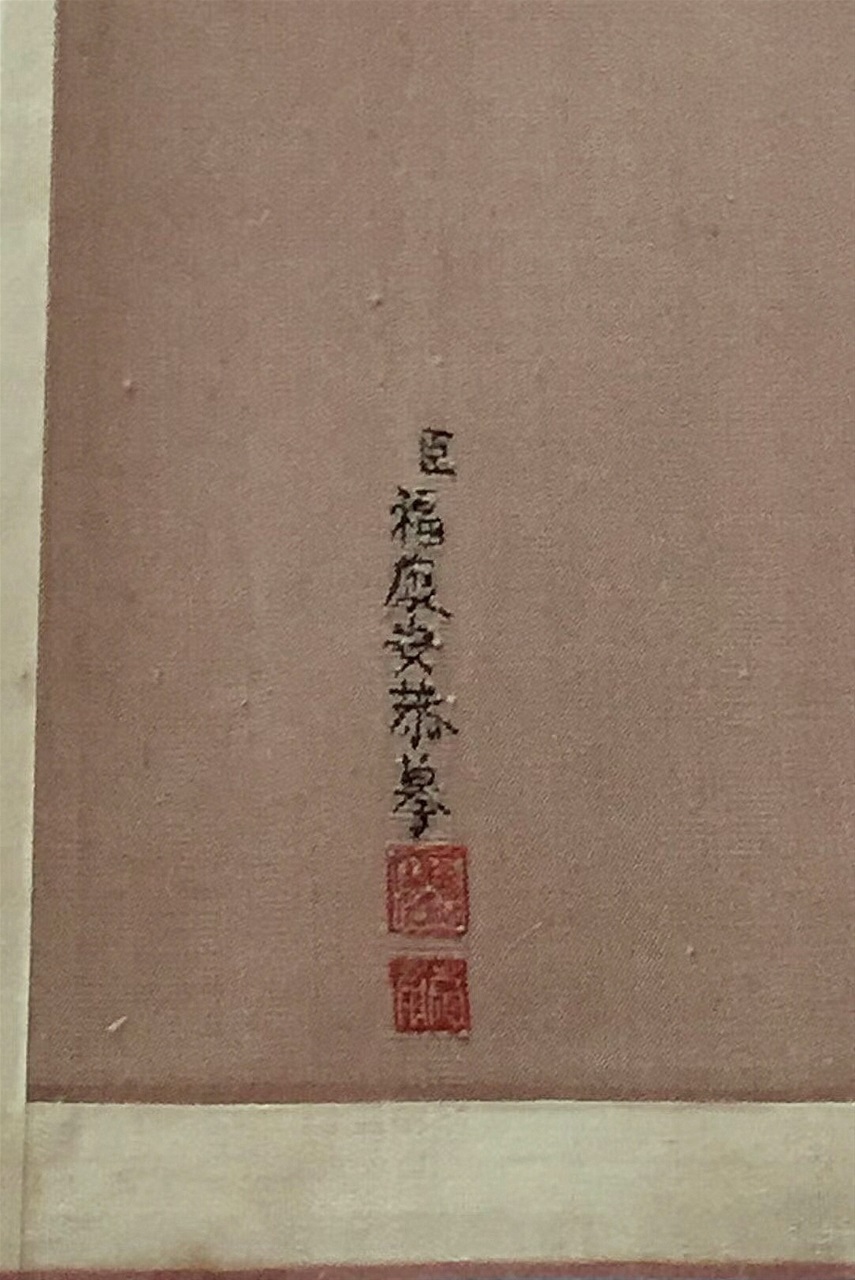 臣福康安恭摹